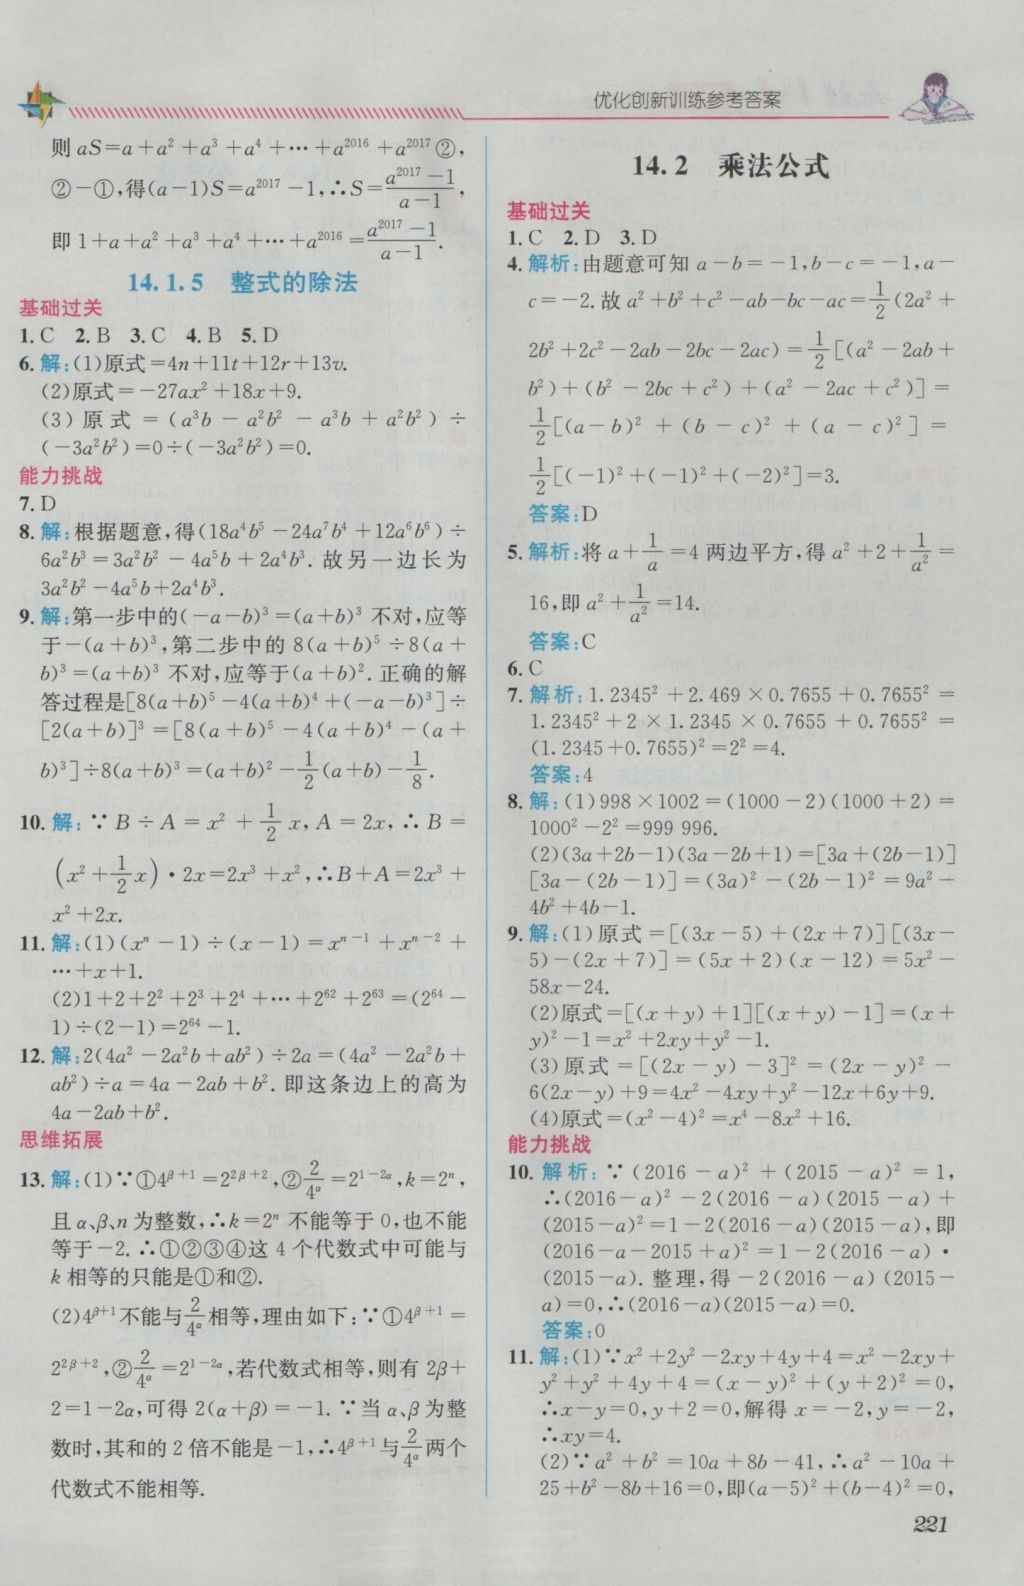 优化创新训练参考答案
则 aS=a+a²+a³+a⁴+⋯+a²⁰¹⁶+a²⁰¹⁷②,
②−①,得(a−1)S=a²⁰¹⁷−1,∴S=\frac{a²⁰¹⁷−1}{a−1},
即 1+a+a²+a³+a⁴+⋯+a²⁰¹⁶=\frac{a²⁰¹⁷−1}{a−1}.
14.1.5 整式的除法
基础过关
1. C 2. B 3. C 4. B 5. D
6. 解:(1)原式=4n+11t+12r+13v.
(2)原式=−27ax²+18x+9.
(3)原式=(a³b−a²b²−a³b+a²b²)÷
(−3a²b²)=0÷(−3a²b²)=0.
能力挑战
7. D
8. 解:根据题意,得(18a⁴b⁵−24a⁷b⁴+12a⁶b⁶)÷
6a²b³=3a²b²−4a⁵b+2a⁴b³.故另一边长为
3a²b²−4a⁵b+2a⁴b³.
9. 解:第一步中的(−a−b)³=(a+b)³ 不对,应等
于−(a+b)³,第二步中的 8(a+b)⁵÷8(a+
b)³=(a+b)³ 不对,应等于(a+b)².正确的解
答过程是[8(a+b)⁵−4(a+b)⁴+(−a−b)³]÷
[2(a+b)]³=[8(a+b)⁵−4(a+b)⁴−(a+
b)³]÷8(a+b)³=(a+b)²−\frac{1}{2}(a+b)−\frac{1}{8}.
10. 解:∵B÷A=x²+\frac{1}{2}x,A=2x,∴B=
(x²+\frac{1}{2}x)•2x=2x³+x²,∴B+A=2x³+
x²+2x.
11. 解:(1)(xⁿ−1)÷(x−1)=xⁿ⁻¹+xⁿ⁻²+
⋯+x+1.
(2)1+2+2²+2³+2⁴+⋯+2⁶²+2⁶³=(2⁶⁴−
1)÷(2−1)=2⁶⁴−1.
12. 解:2(4a²−2a²b+ab²)÷2a=(4a²−2a²b+
ab²)÷a=4a−2ab+b².即这条边上的高为
4a−2ab+b².
思维拓展
13. 解:(1)∵①4^{β+1}=2^{2β+2},②\frac{2}{4^α}=2^{1−2α},k=2ⁿ,
且α、β、n为整数,∴k=2ⁿ 不能等于0,也不能
等于−2.∴①②③④这 4 个代数式中可能与
k相等的只能是①和②.
(2)4^{β+1}不能与\frac{2}{4^α}相等,理由如下:∵①4^{β+1}=
2^{2β+2},②\frac{2}{4^α}=2^{1−2α},若代数式相等,则有 2β+
2=1−2α,可得 2(α+β)=−1.∵当α、β为整
数时,其和的 2 倍不能是−1,∴4^{β+1}与\frac{2}{4^α}两个
代数式不能相等.
14.2 乘法公式
基础过关
1. C 2. D 3. D
4. 解析:由题意可知 a−b=−1,b−c=−1,a−
c=−2.故 a²+b²+c²−ab−bc−ac=\frac{1}{2}(2a²+
2b²+2c²−2ab−2bc−2ac)=\frac{1}{2}[(a²−2ab+
b²)+(b²−2bc+c²)+(a²−2ac+c²)]=
\frac{1}{2}[(a−b)²+(b−c)²+(a−c)²]=
\frac{1}{2}[(−1)²+(−1)²+(−2)²]=3.
答案:D
5. 解析:将 a+\frac{1}{a}=4 两边平方,得 a²+2+\frac{1}{a²}=
16,即 a²+\frac{1}{a²}=14.
答案:C
6. C
7. 解析:1.2345²+2.469×0.7655+0.7655²=
1.2345²+2×1.2345×0.7655+0.7655²=
(1.2345+0.7655)²=2²=4.
答案:4
8. 解:(1)998×1002=(1000−2)(1000+2)=
1000²−2²=999 996.
(2)(3a+2b−1)(3a−2b+1)=[3a+(2b−1)]
[3a−(2b−1)]=(3a)²−(2b−1)²=9a²−
4b²+4b−1.
9. 解:(1)原式=[(3x−5)+(2x+7)][(3x−
5)−(2x+7)]=(5x+2)(x−12)=5x²−
58x−24.
(2)原式=[(x+y)+1][(x+y)−1]=(x+
y)²−1=x²+2xy+y²−1.
(3)原式=[(2x−y)−3]²=(2x−y)²−
6(2x−y)+9=4x²−4xy+y²−12x+6y+9.
(4)原式=(x²−4)²=x⁴−8x²+16.
能力挑战
10. 解析:∵(2016−a)²+(2015−a)²=1,
∴(2016−a)²−2(2016−a)(2015−a)+
(2015−a)²=1−2(2016−a)(2015−a),即
(2016−a−2015+a)²=1−2(2016−a)•
(2015−a).整理,得−2(2016−a)(2015−
a)=0,∴(2016−a)(2015−a)=0.
答案:0
11. 解:(1)∵x²+2y²−2xy+4y+4=x²−2xy+
y²+y²+4y+4=(x−y)²+(y+2)²=0,
∴x−y=0,y+2=0,解得 x=−2,y=−2,
∴xy=4.
(2)∵a²+b²=10a+8b−41,∴a²−10a+
25+b²−8b+16=0,即(a−5)²+(b−4)²=0,
221